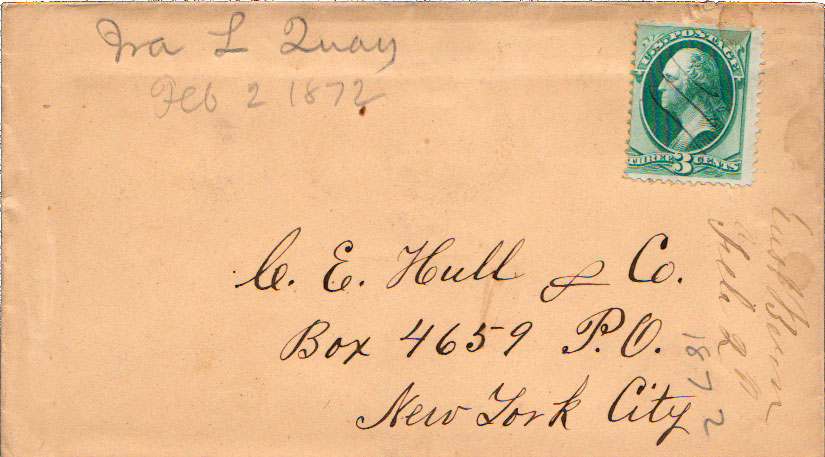 Ira L Quay
Feb 2 1872
U.S. POSTAGE
THREE 3 CENTS
C. E. Hull & Co.
Box 4659 P.O.
New York City
East Berne
Feb 2
1872